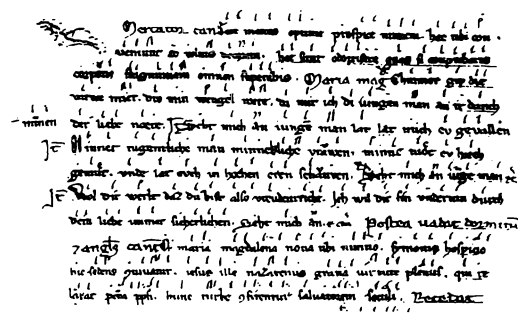 Mercator cantet merces optime prospice nitorem. hec tibi con
veniunt ad vultus decorem. hec sunt odorifere quas si conprobaris
corporis flagrantiam omnem superabis. Maria mag. Chramer gip die
varwe mier. div min wengel roete. da mit ich di iungen man an ir danch
minnen der liebe noete. Seht mich an iungen man lat lat mich ev gevallen
Jt Minnet tugentliche man minnekliche vrawen. minne tuot ev hoech
gemuot. vnde lat evch in hohen eren schawen. Seht mich an iunge man
Jt Wol dir werlt daz du bist also vreudenriche. Ich wil dir sin vndertan durch
dein liebe immer sicherlichen. Seht mich an. Postea vadat dormitum
7 angls cantet maria magdalena nova tibi nuntio. symonis hospitio
hic sedens conviuatur. iesus ille nazarenus gratia virtute plenus. qui re
laxat pecca ppli. hunc turbe confitentur saluatorem seculi. Recedat